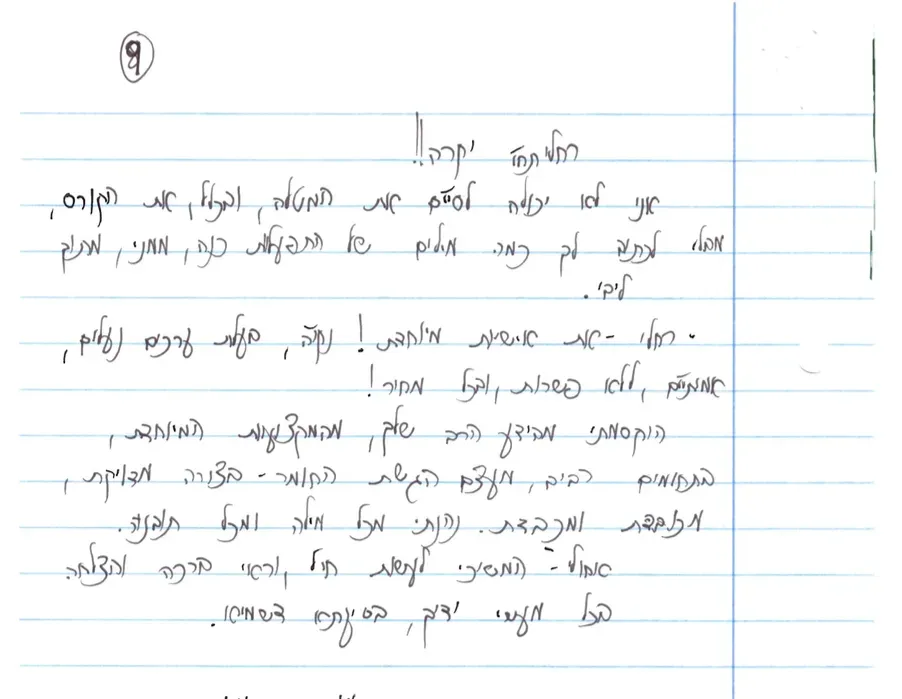 9
רחלי תחי' יקרה!!
אני לא יכולה לסיים את המטלה, ובכלל, את הקורס,
מבלי לכתוב לך כמה מילים של התפעלות כנה, ממני, מתוך
ליבי.
רחלי - את אישיות מיוחדת! נקיה, בעלת ערכים נעלים,
אמיתיים, ללא פשרות, ובכל מחיר!
הוקסמתי מהידע הרב שלך, מהמקצועיות המיוחדת,
בתחומים רבים, מעצם הגשת החומר - בצורה מדויקת,
מכובדת ומכבדת. נהנתי מכל מילה ומכל תובנה.
איחולי - המשיכי לעשות חיל, וראי ברכה והצלחה
בכל מעשי ידיך, בסיעתא דשמיא.